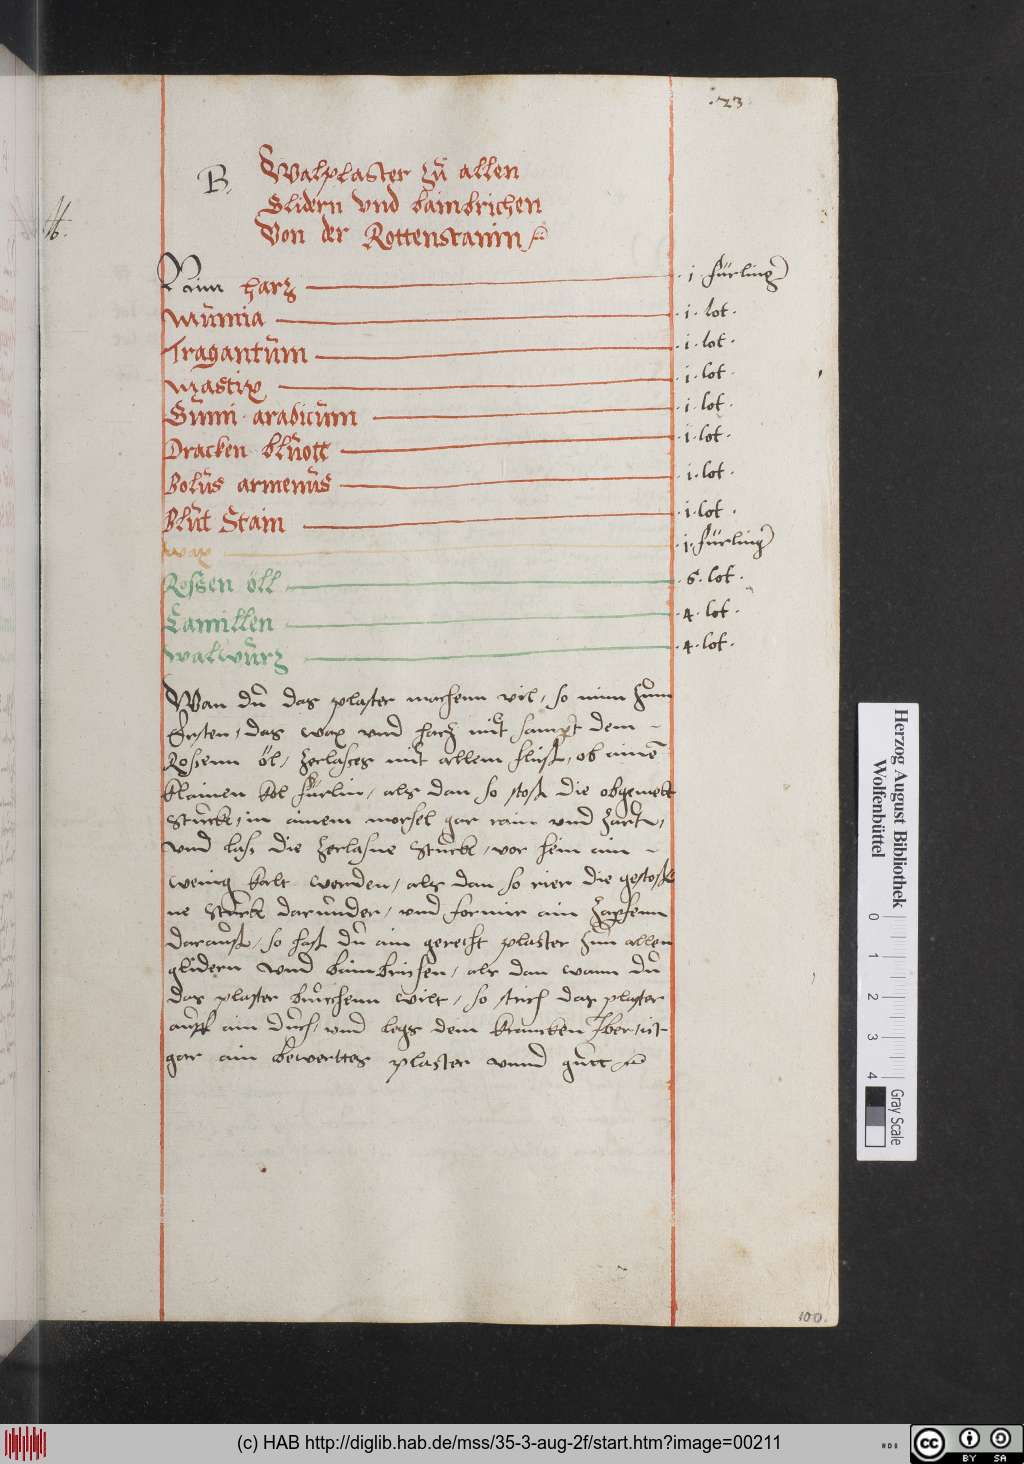 .23
B. Walplaster zů allen
Glidern vnd bainbrichen
Von der Rottenstanin
Nim harz i. fürling
Mumia .i. lot.
Tragantum .i. lot.
Mastix .i. lot.
Gumi arabicum .i. lot.
Dracken bluott .i. lot.
Bolus armenus .i. lot.
Blut Stain .i. lot.
wax .i. fürling
Rossen öll .6. lot.
Camillen .4. lot.
walwurz .4. lot.
Wan du das plaster machenn wil, so nim zum
Ersten, das wax vnd harz mit sampt dem
Rossenn öl, zerlasces mit allem fliss, ob aine
klainen kol fürlin, als dan so stoss die obgemelt
Stuckh, in ainem morsel gar rain vnd zartt,
vnd lass die zerlasne Stuckh, vor hin ain
wenig kalt werden, als dan so rier die gestoss
ne Stuck darunder, vnd formir ain zapfenn
darauss, so hast du ain gerecht plaster zun allen
glidern vnd bainbrichen, als dan wann du
das plaster bruchenn wilt, so strich das plaster
auff ain duch, vnd legs dem krancken Iber, ist
gar ain bewerttes plaster vnnd gutt
100.
Herzog August Bibliothek
Wolfenbüttel
0 1 2 3 4
Gray Scale
(c) HAB http://diglib.hab.de/mss/35-3-aug-2f/start.htm?image=00211
cc
BY SA